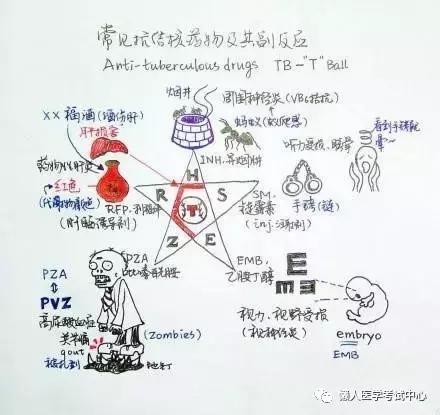 常见抗结核药物及其副反应
Anti-tuberculous drugs TB-"T" Ball
烟井
周围神经炎(VB6拮抗)
XX福酒(酒伤肝)
肝损害
蚂蚁
听力受损、眩晕
看到手铐就晕~
INH.异烟肼
药物性肝炎
红色
(代谢物颜色)
RFP.利福平
(肝酶诱导剂)
H
R
S
T
Z
E
SM.
链霉素
(inj.注射剂)
手铐(链)
PZA
吡嗪酰胺
EMB,
乙胺丁醇
PZA
PVZ
高尿酸血症
关节痛
gout
(Zombies)
地雷
视力、视野受损
(视神经炎)
embryo
EMB
懒人医学考试中心